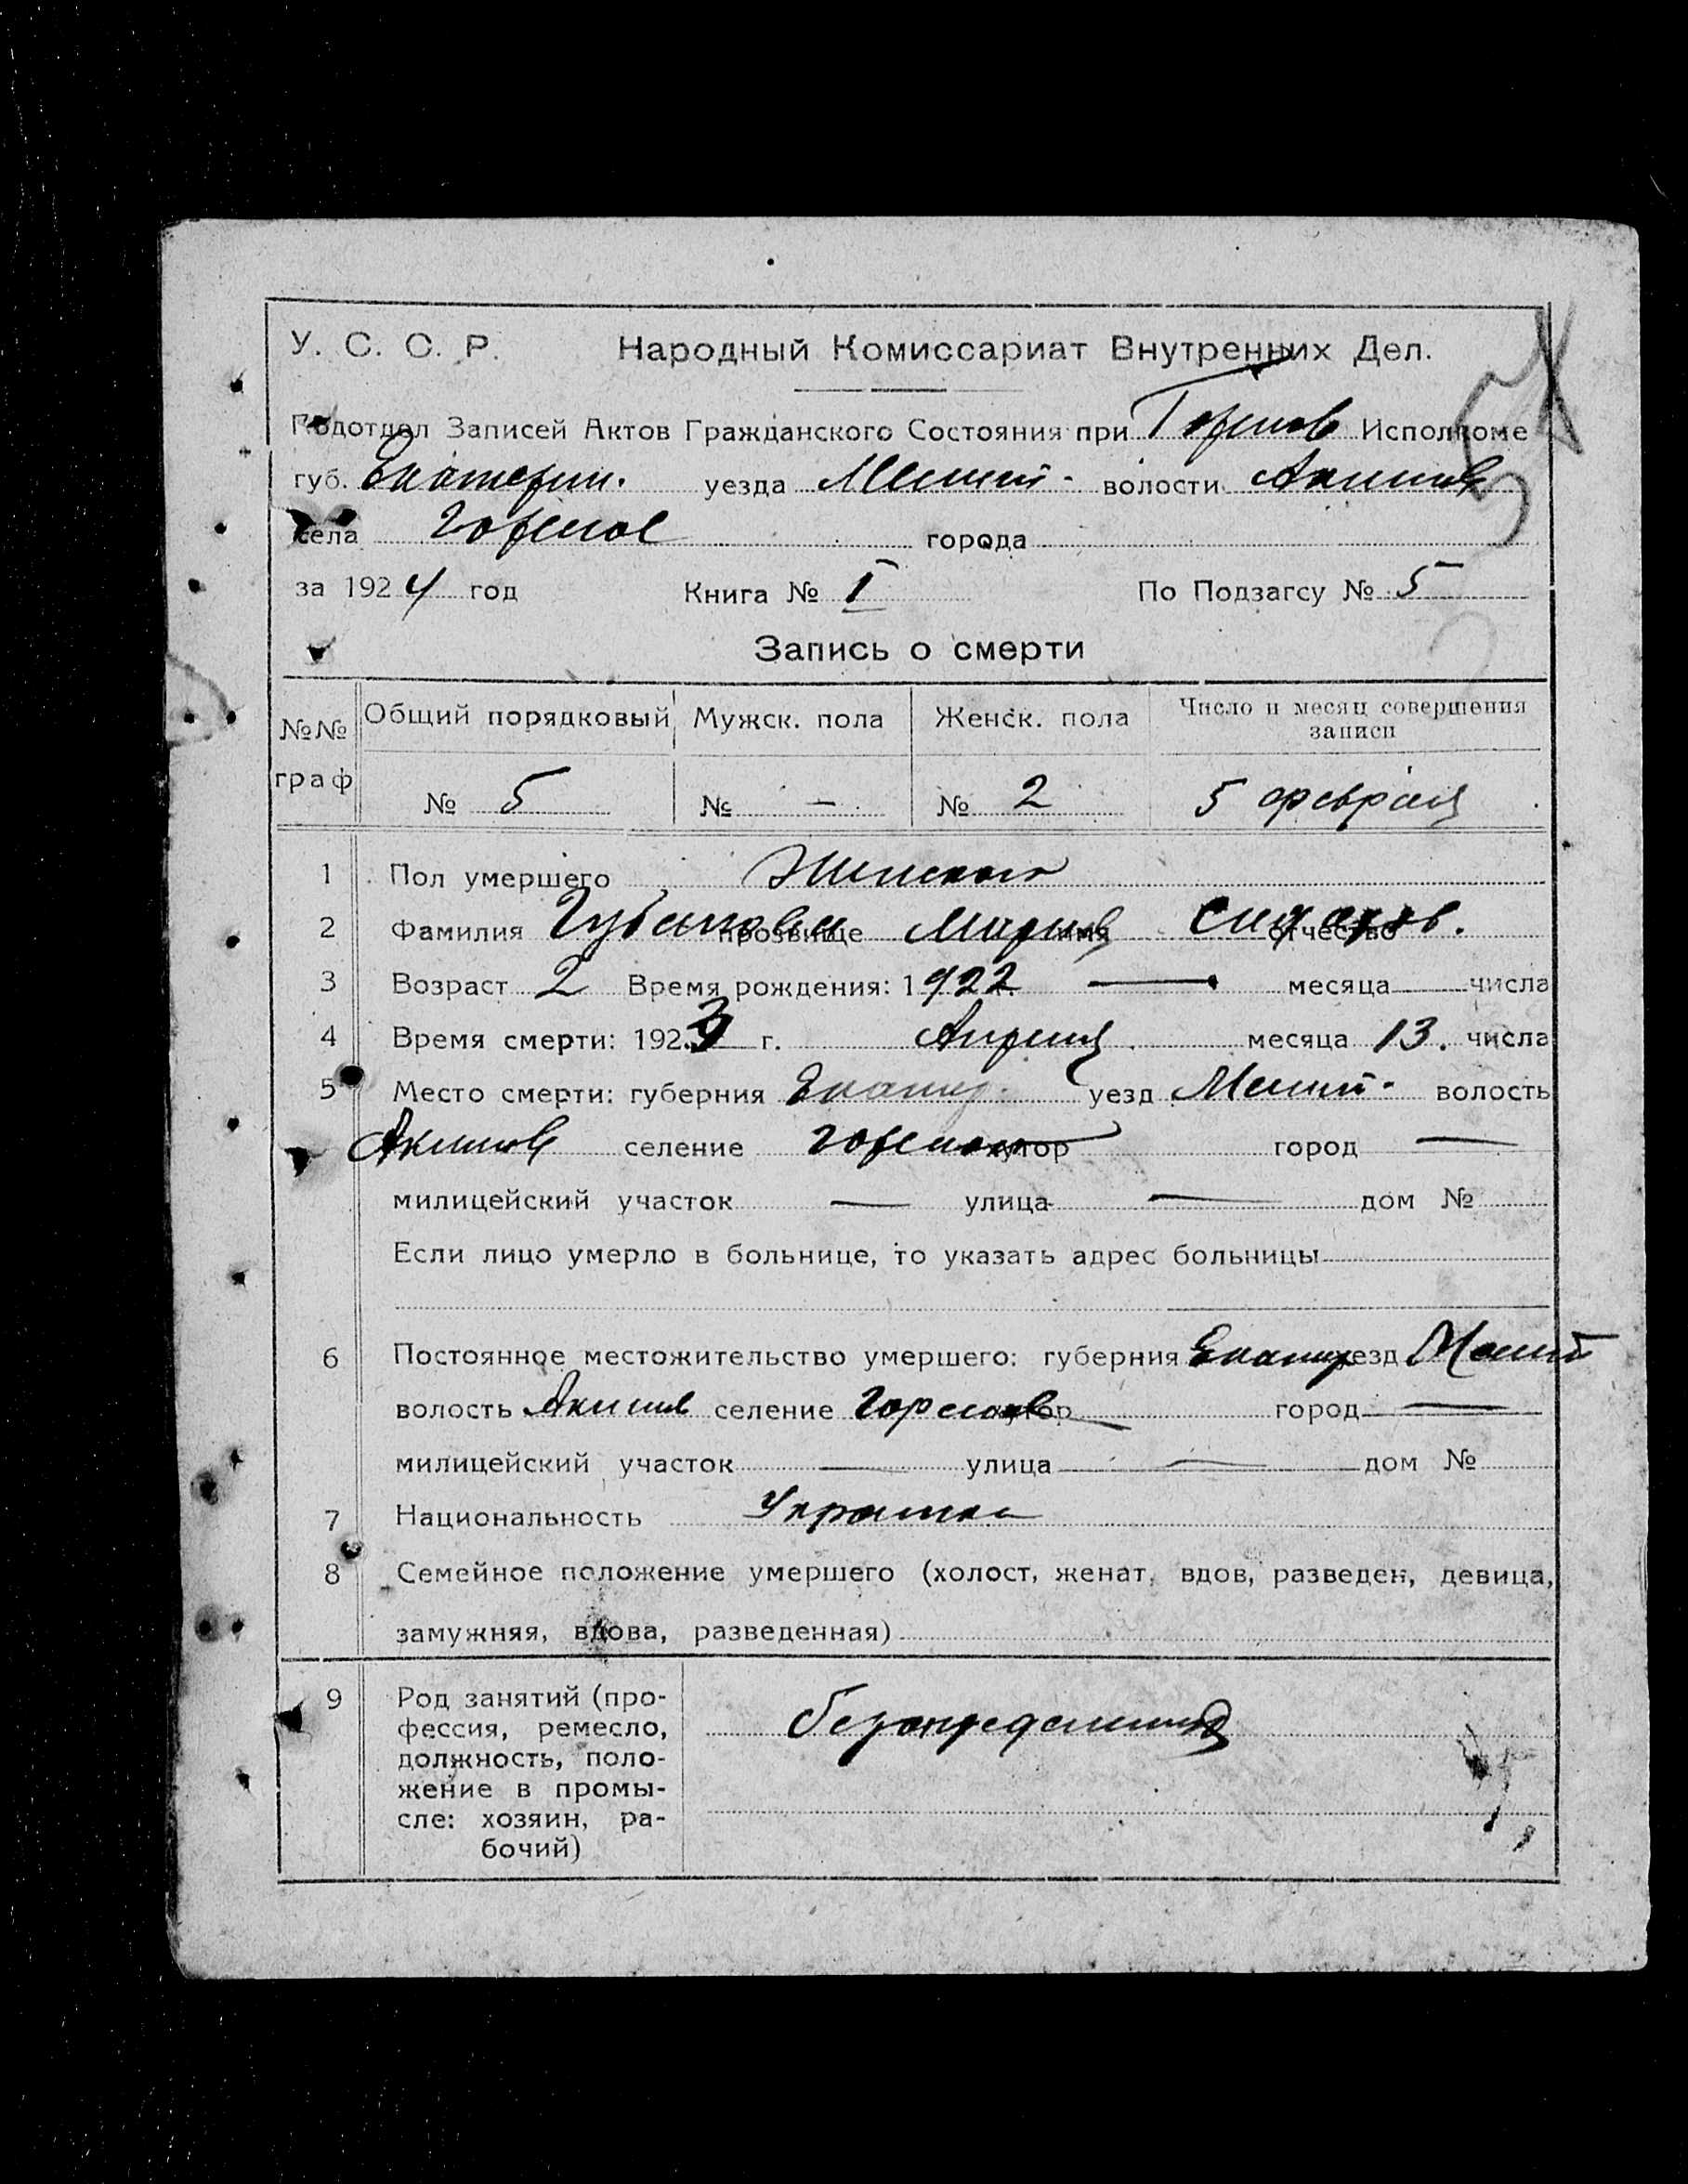 У. С. С. Р. Народный Комиссариат Внутренних Дел.
Подотдел Записей Актов Гражданского Состояния при Исполкоме
губ. Екатерин. уезда волости Акимов
села города
за 1924 год Книга № I По Подзагсу № 5
Запись о смерти
№№ граф Общий порядковый Мужск. пола Женск. пола Число и месяц совершения записи
№ 5 № — № 2 5 февраля
1 Пол умершего Женского
2 Фамилия прозвище Мария имя отчество
3 Возраст 2 Время рождения: 1922 — месяца числа
4 Время смерти: 1923 г. Апреля месяца 13. числа
5 Место смерти: губерния Екатер. уезд волость
Акимов селение хутор город —
милицейский участок — улица — дом №
Если лицо умерло в больнице, то указать адрес больницы
6 Постоянное местожительство умершего: губерния Екатер уезд
волость Акимов селение хутор город —
милицейский участок — улица — дом №
7 Национальность
8 Семейное положение умершего (холост, женат, вдов, разведен, девица,
замужняя, вдова, разведенная)
9 Род занятий (про-
фессия, ремесло,
должность, поло-
жение в промы-
сле: хозяин, ра-
бочий)